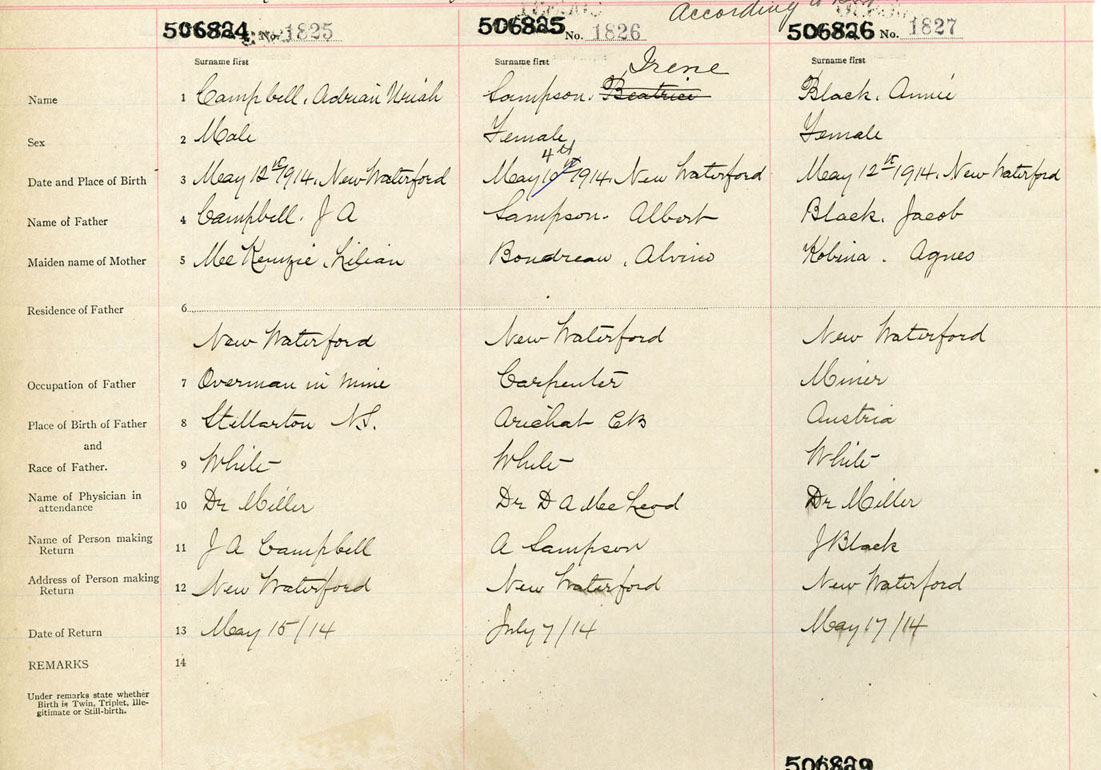 According
506824 No. 1825 506825 No. 1826 506826 No. 1827
Surname first Surname first Surname first
Irene
Name 1 Campbell, Adrian Uriah Sampson. Beatrice Black. Annie
Sex 2 Male Female Female
4th
Date and Place of Birth 3 May 12th 1914. New Waterford May 1914. New Waterford May 12th 1914. New Waterford
Name of Father 4 Campbell. J A Sampson. Albert Black. Jacob
Maiden name of Mother 5 McKenzie, Lilian Boudreau, Alvina Kobina. Agnes
Residence of Father 6
New Waterford New Waterford New Waterford
Occupation of Father 7 Overman in mine Carpenter Miner
Place of Birth of Father 8 Stellarton N.S. Arichat CB Austria
and
Race of Father. 9 White White White
Name of Physician in
attendance 10 Dr Miller Dr D A McLeod Dr Miller
Name of Person making
Return 11 J A Campbell A Sampson J Black
Address of Person making
Return 12 New Waterford New Waterford New Waterford
Date of Return 13 May 15/14 July 7/14 May 17/14
REMARKS 14
Under remarks state whether
Birth is Twin, Triplet, Ille-
gitimate or Still-birth.
506829